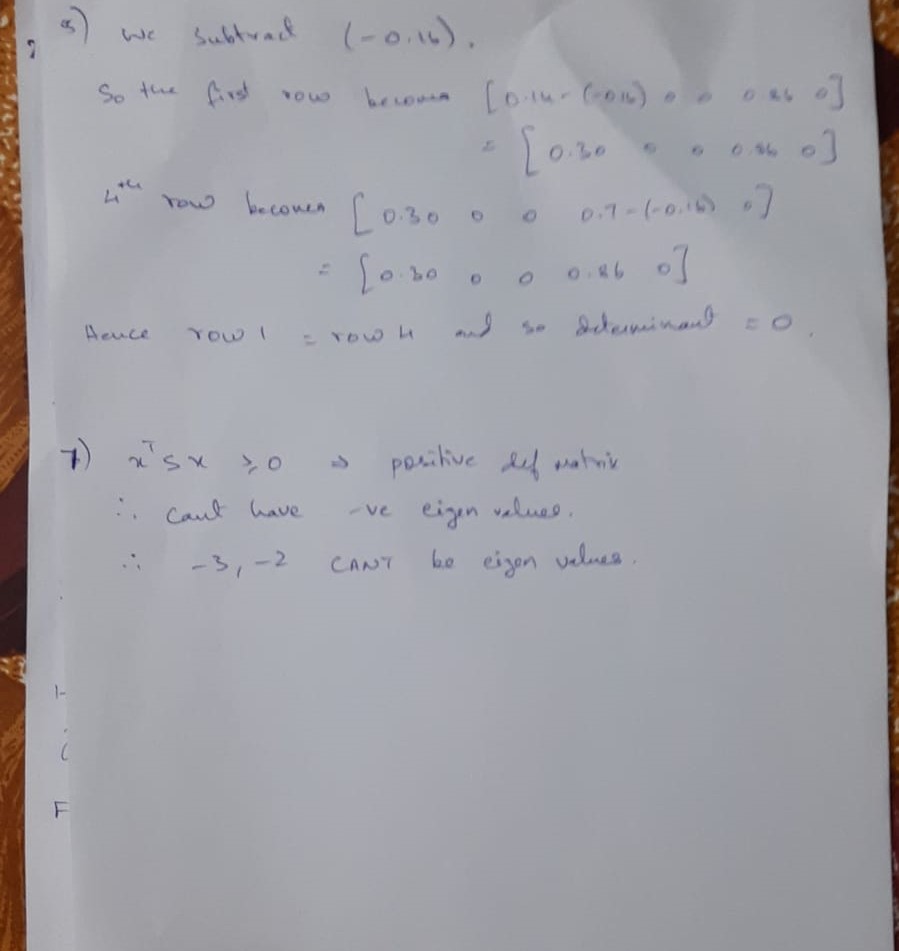 5) we subtract (-0.16).
So the first row becomes [0.14-(-0.16) 0 0 0.86 0]
= [0.30 0 0 0.86 0]
4th row becomes [0.30 0 0 0.7-(-0.16) 0]
= [0.30 0 0 0.86 0]
Hence row 1 = row 4 and so determinant = 0.
7) xᵀSx ≥ 0 ⇒ positive def matrix
∴ Cant have -ve eigen values.
∴ -3, -2 CANT be eigen values.
F